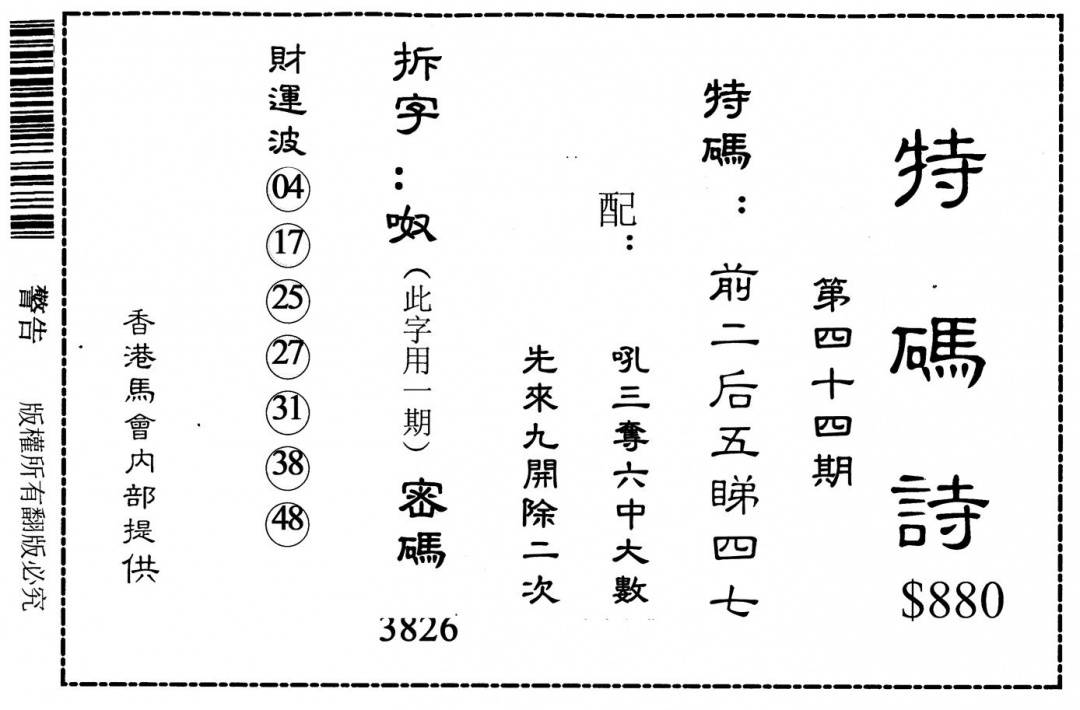 特碼詩
$880
第四十四期
特碼：前二后五睇四七
配：吼三奪六中大數
先來九開除二次
拆字：呶（此字用一期）密碼
3826
財運波 04 17 25 27 31 38 48
香港馬會內部提供
警告 版權所有翻版必究